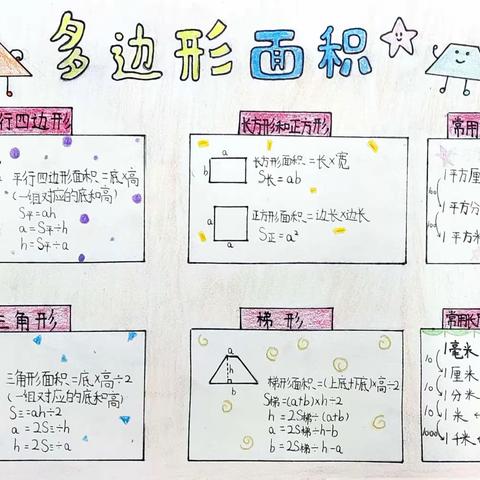 多边形面积
行四边形
平行四边形面积=底×高
(一组对应的底和高)
S平=ah
a=S平÷h
h=S平÷a
长方形和正方形
a
b
长方形面积=长×宽
S长=ab
a
a
正方形面积=边长×边长
S正=a²
常用
1平方厘
100
1平方分
100
1平方米
三角形
三角形面积=底×高÷2
(一组对应的底和高)
S三=ah÷2
a=2S三÷h
h=2S三÷a
梯形
a
h
b
梯形面积=(上底+下底)×高÷2
S梯=(a+b)×h÷2
h=2S梯÷(a+b)
a=2S梯÷h-b
b=2S梯÷h-a
常用长
1毫米
10
1厘米
10
1分米
10
1米
1000
1千米